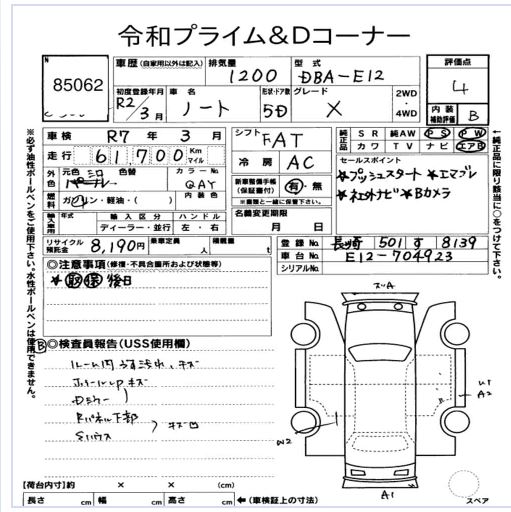 令和プライム&Dコーナー
N
85062
車歴 (自家用以外は記入) 排気量 1200 型式 DBA-E12 評価点 4
初度登録年月 R2/3月 車名 ノート 形状・ドア数 5D グレード X 2WD・4WD 内装補助評価 B
車検 R7年3月 シフト FAT 純正品 SR 純AW PS PW
カワ TV ナビ エアB
走行 61700 Km マイル 冷房 AC セールスポイント
外色 元色 色替 カラーNo. QAY 新車整備手帳(保証書付) 有・無 ★プッシュスタート ★エマブレ
燃料 ガソリン・軽油・( ) 内装色 ※車両と一緒に保管下さい。 ★社外ナビ ★Bカメラ
輸入車用 年式 輸入区分 ハンドル 名義変更期限
ディーラー・並行 左・右 月 日
リサイクル預託金 8,190円 乗車定員 人 積載量 t 登録No. 長崎 501 す 8139
車台No. E12-704923
シリアルNo.
◎注意事項 (修復・不具合箇所および状態等)
★取保後日
B ◎検査員報告(USS使用欄)
ルーム内 汚れ、キズ
キズ
Dミラー
Rパネル下部 キズ凹
W2
U1
A2
A1
スA
スペア
【荷台内寸】約 × × (cm)
長さ cm 幅 cm 高さ cm ←(車検証上の寸法)
※必ず油性ボールペンをご使用下さい。水性ボールペンは使用できません。
←純正品に限り該当に○をつけて下さい。